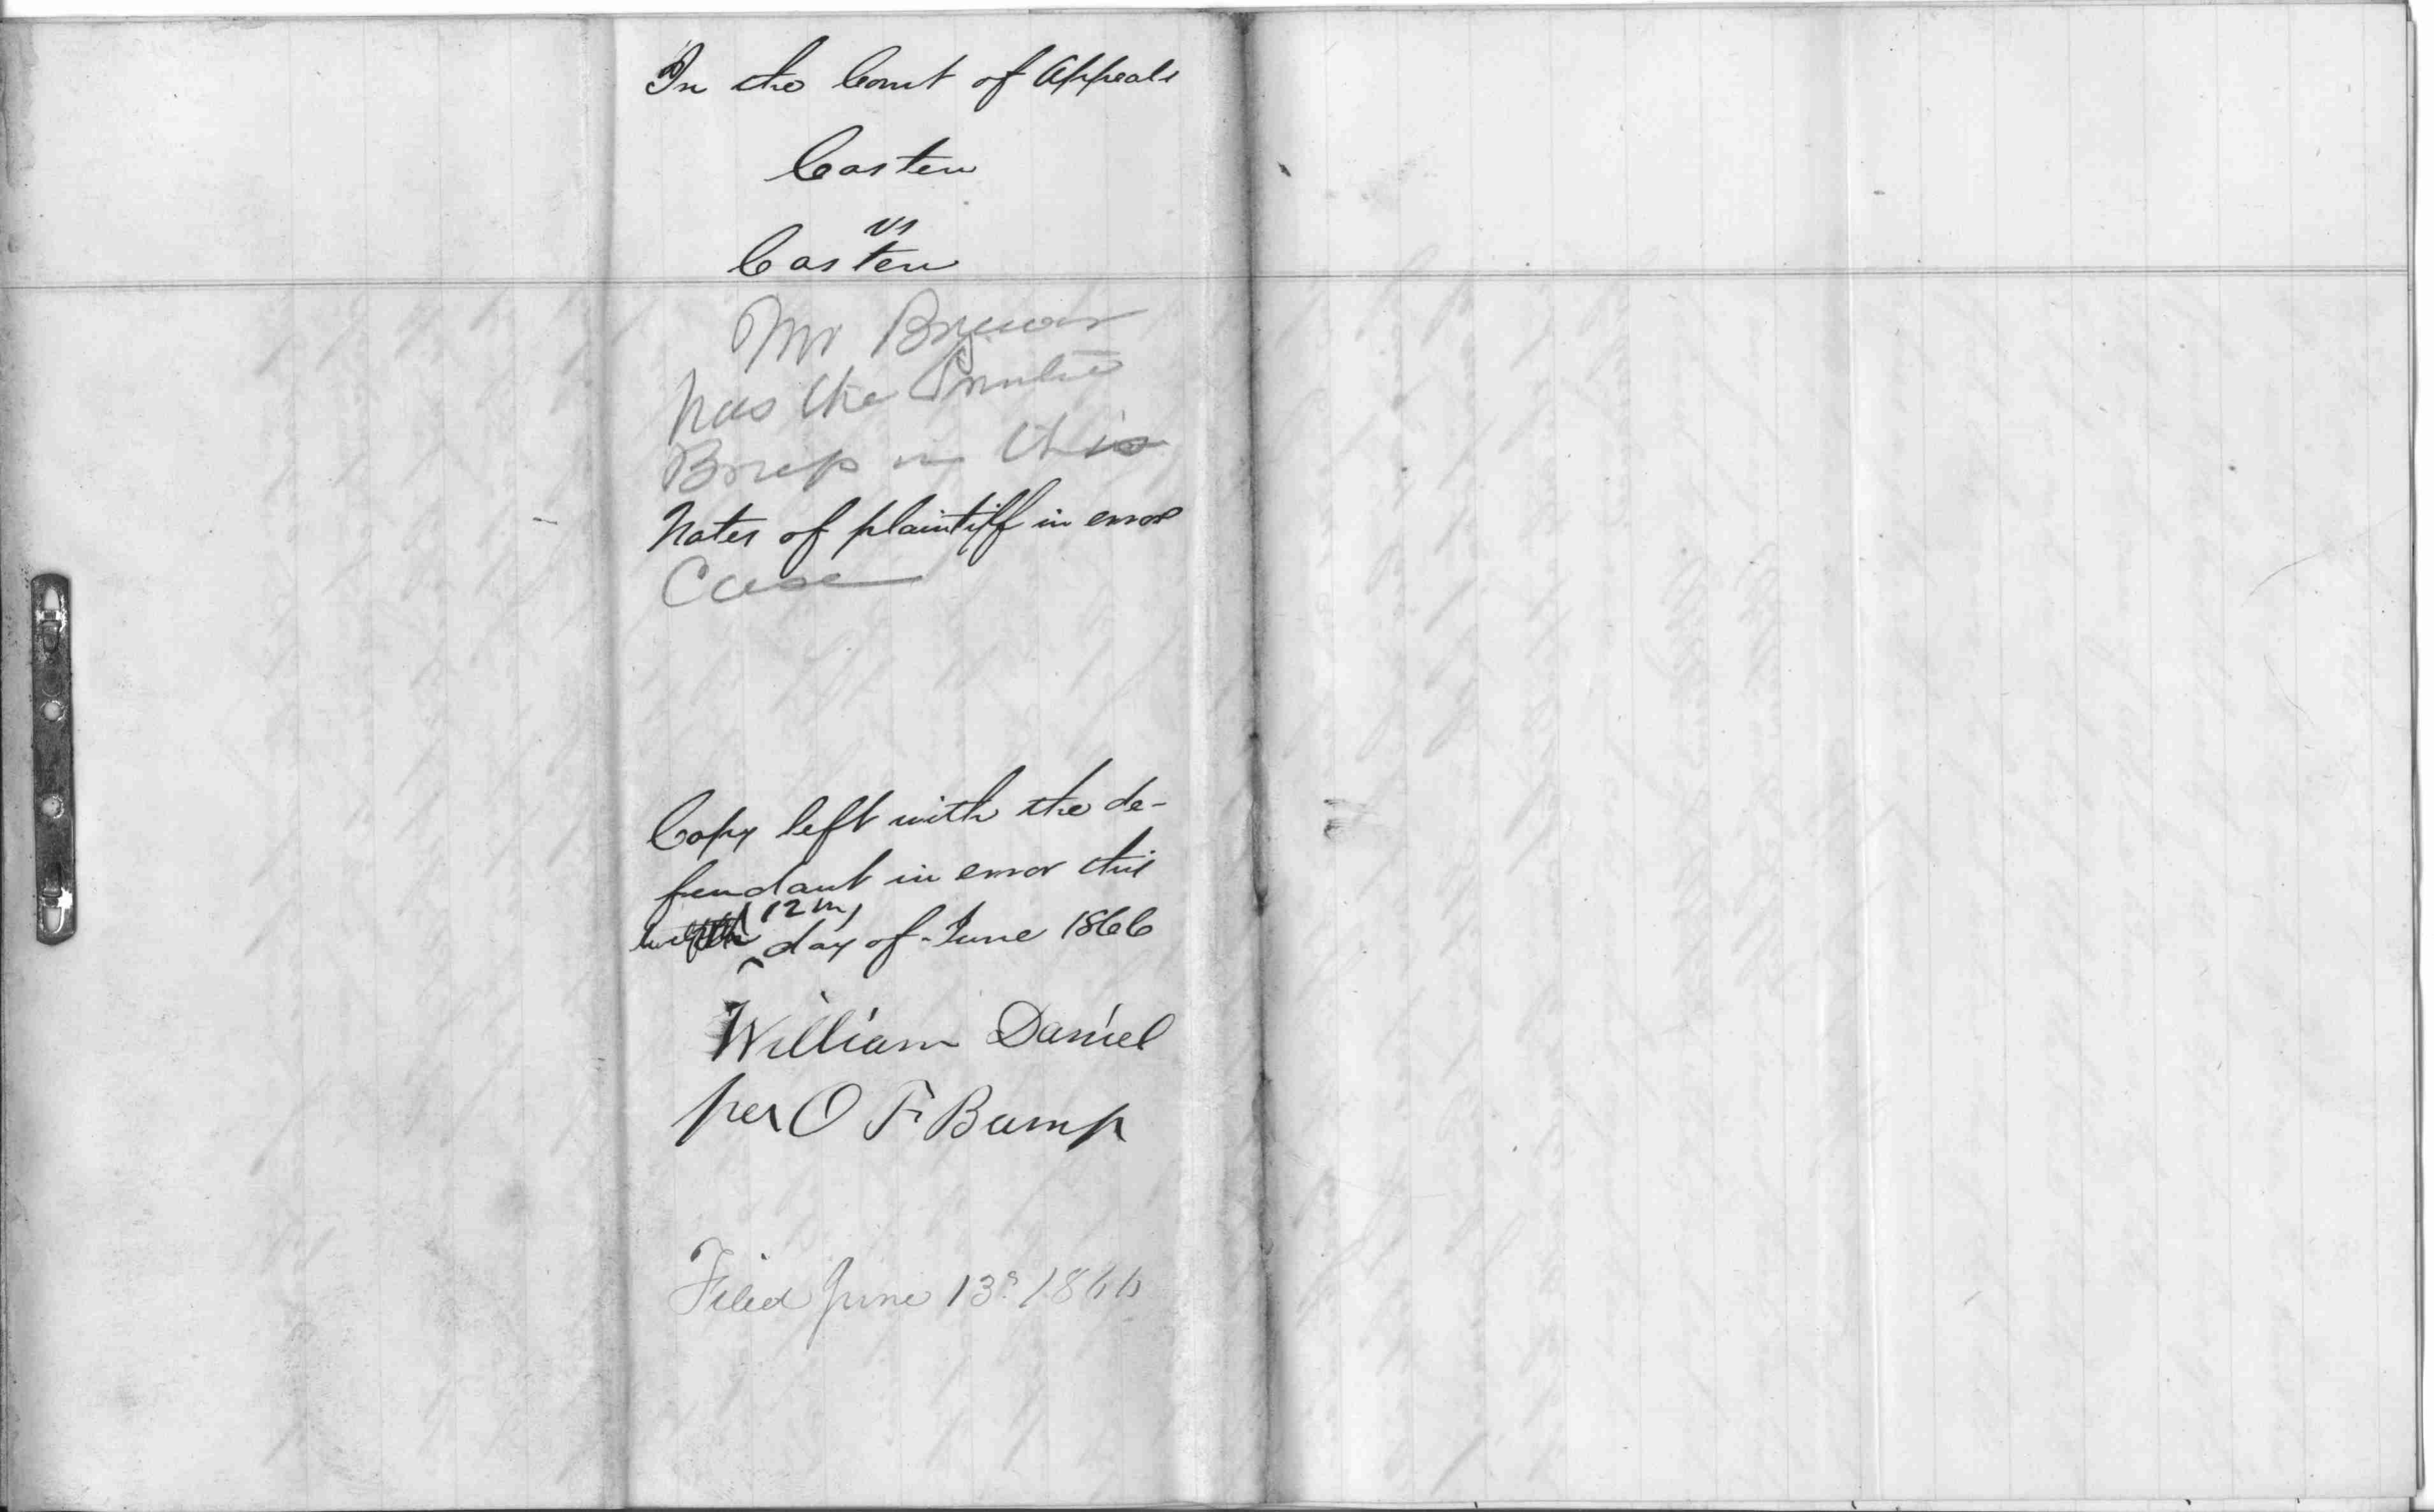 In the Court of Appeals
Costen
vs
Costen
Mr
has the Printed
Brief in this
Notes of plaintiff in error
Case
Copy left with the de-
fendant in error this
12th
day of June 1866
William Daniel
per O F Bump
Filed June 13th 1866